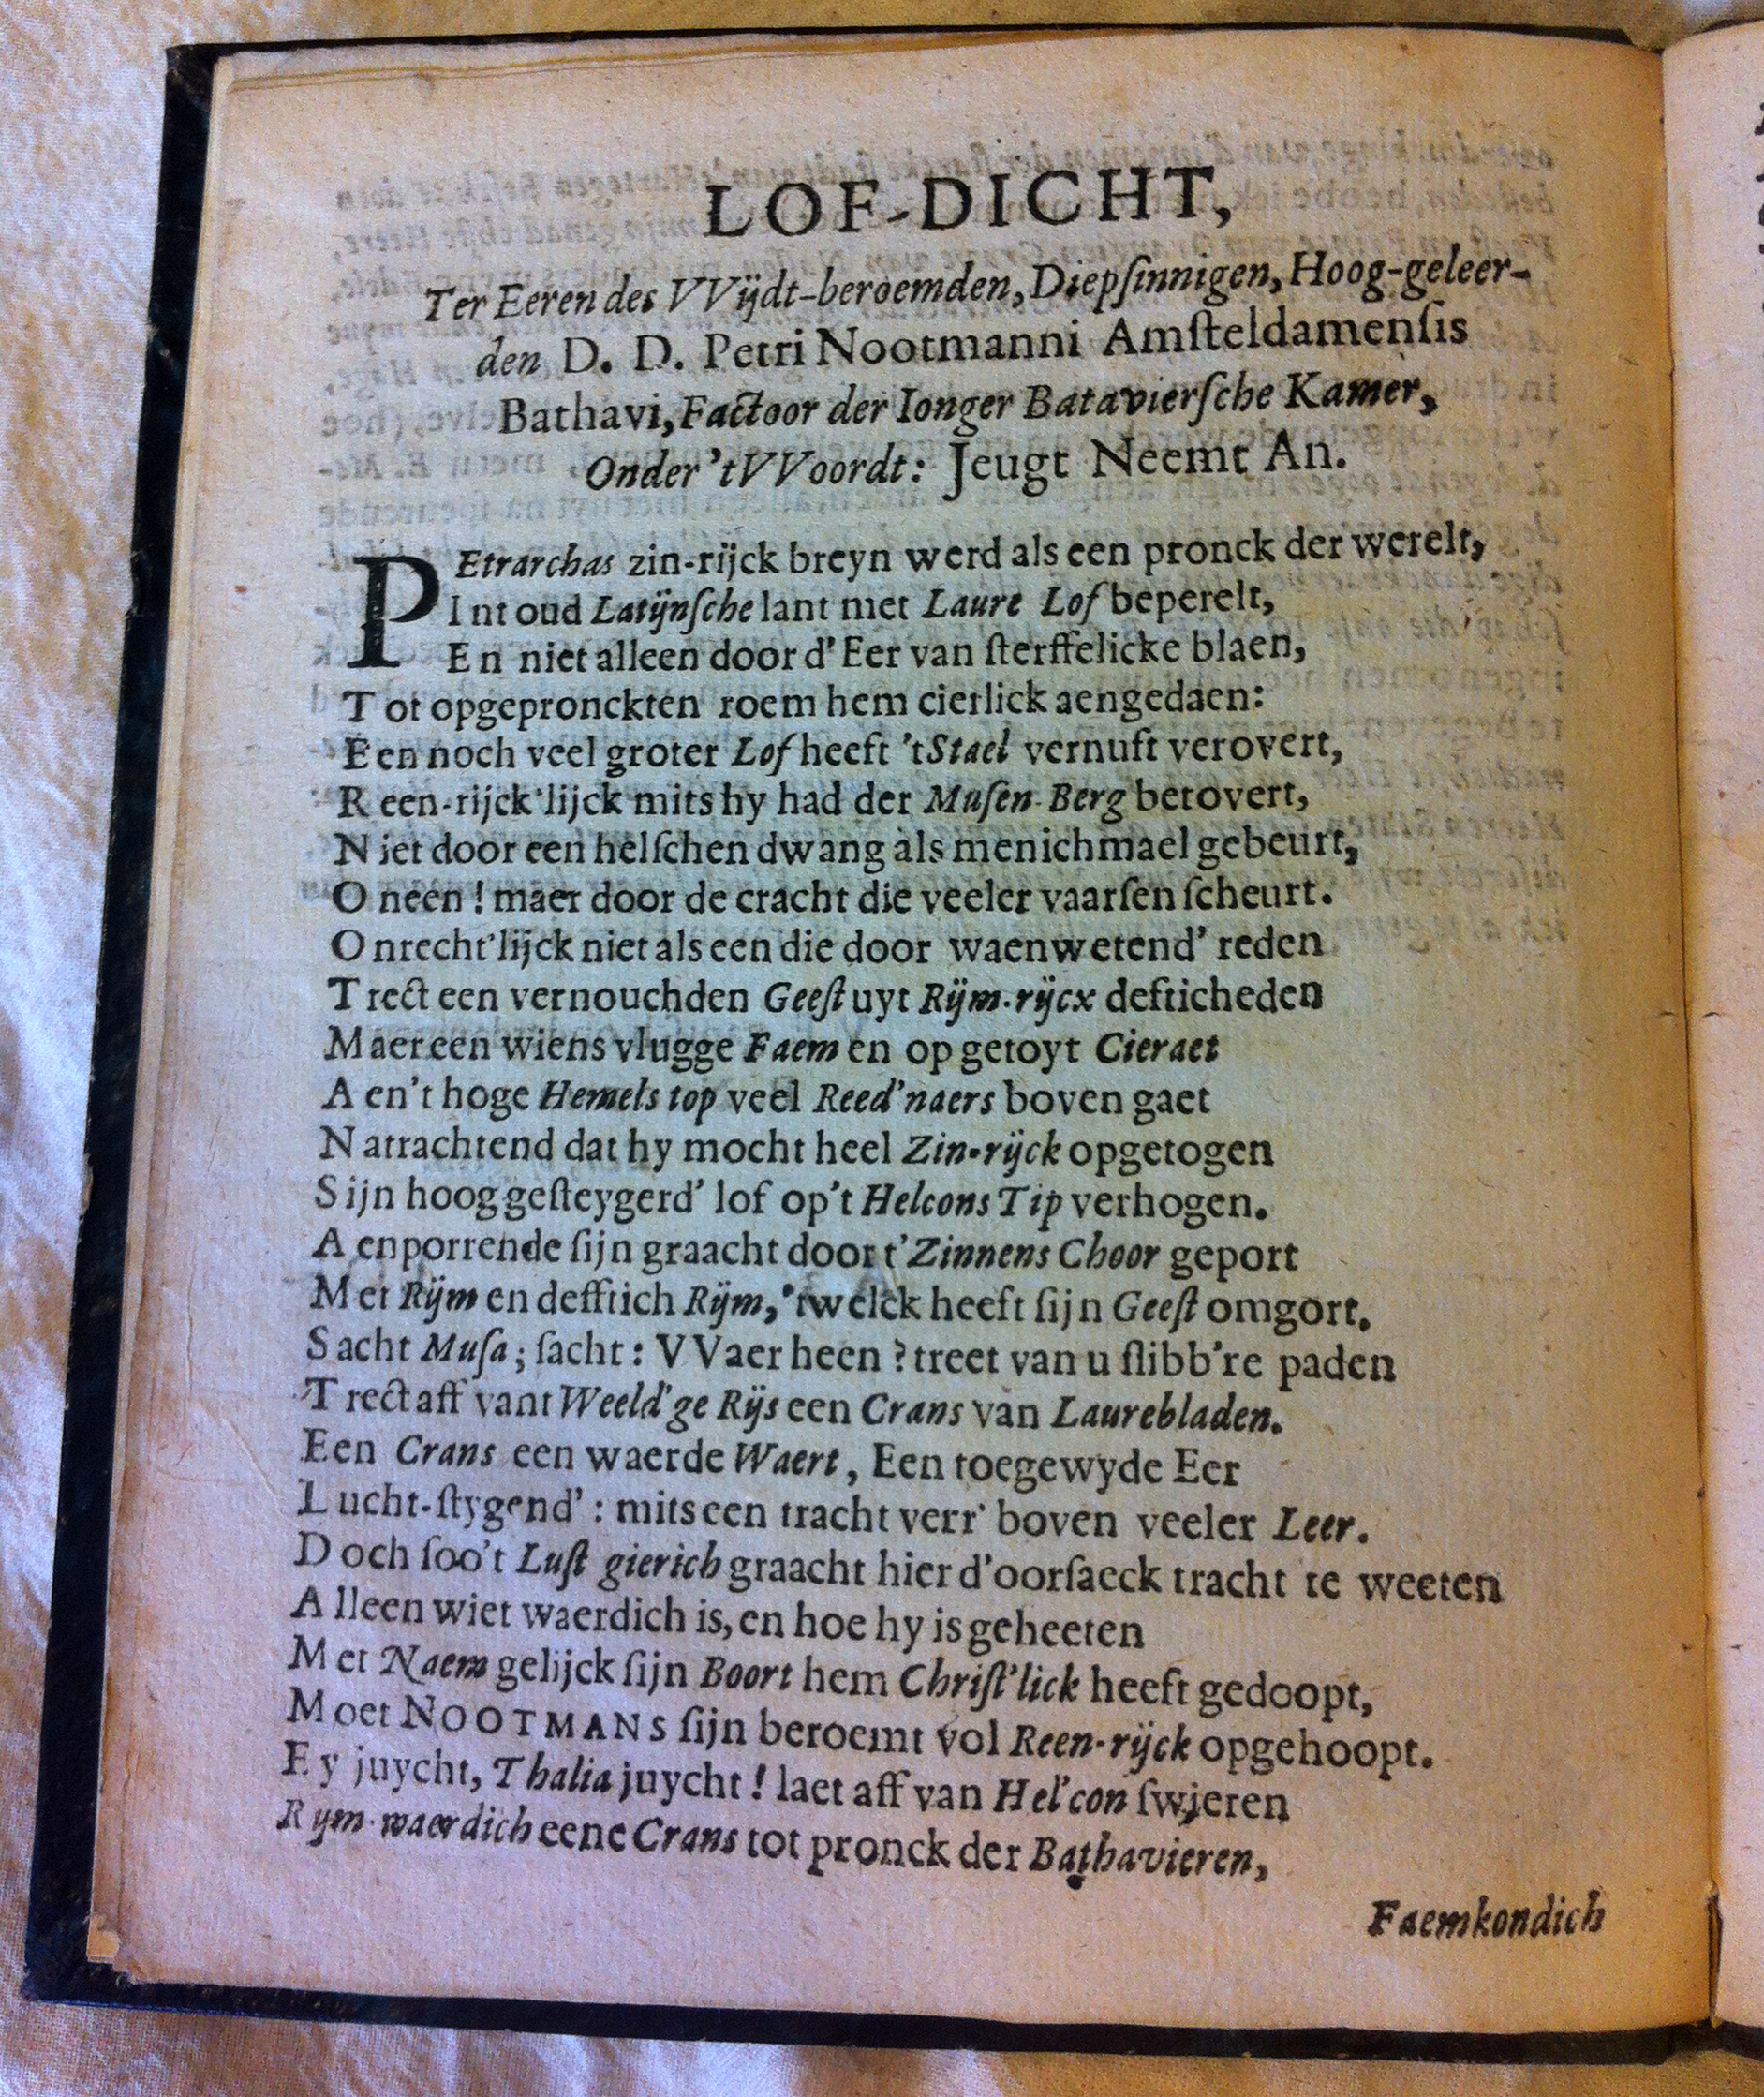 LOF-DICHT,
Ter Eeren des VVijdt-beroemden, Diepſinnigen, Hoog-geleer-
den D. D. Petri Nootmanni Amſteldamenſis
Bathavi, Factoor der Ionger Batavierſche Kamer,
Onder 't VVoordt: Jeugt Neemt An.
PEtrarchas zin-rijck breyn werd als een pronck der werelt,
Int oud Latijnſche lant met Laure Lof beperelt,
En niet alleen door d'Eer van ſterffelicke blaen,
Tot opgepronckten roem hem cierlick aengedaen:
Een noch veel groter Lof heeft 't Stael vernuft verovert,
Reen-rijck'lijck mits hy had der Muſen-Berg betovert,
Niet door een helſchen dwang als menichmael gebeurt,
O neen! maer door de cracht die veeler vaarſen ſcheurt.
Onrecht'lijck niet als een die door waenwetend' reden
Trect een vernouchden Geeſt uyt Rijm-rijcx defticheden
Maer een wiens vlugge Faem en op getoyt Cieraet
Aen't hoge Hemels top veel Reed'naers boven gaet
Natrachtend dat hy mocht heel Zin-rijck opgetogen
Sijn hoog geſteygerd' lof op't Helcons Tip verhogen.
Aenporrende ſijn graacht door t'Zinnens Choor geport
Met Rijm en defftich Rijm, 'twelck heeft ſijn Geeſt omgort.
Sacht Muſa; ſacht: VVaer heen? treet van u ſlibb're paden
Trect aff vant Weeld'ge Rijs een Crans van Laurebladen.
Een Crans een waerde Waert, Een toegewyde Eer
Lucht-ſtygend': mits een tracht verr' boven veeler Leer.
Doch ſoo't Luſt gierich graacht hier d'oorſaeck tracht te weeten
Alleen wiet waerdich is, en hoe hy is geheeten
Met Naem gelijck ſijn Boort hem Chriſt'lick heeft gedoopt,
Moet NOOTMANS ſijn beroemt vol Reen-rijck opgehoopt.
Ey juycht, Thalia juycht! laet aff van Hel'con ſwieren
Rym-waerdich eene Crans tot pronck der Bathavieren,
Faemkondich